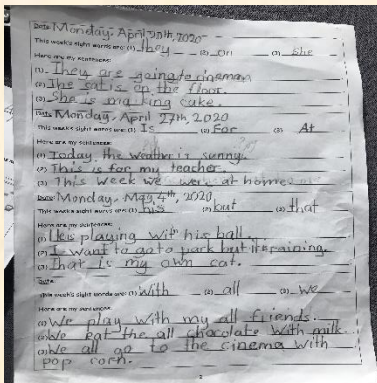 Date: Monday, April 20th, 2020
This week's sight words are: (1) they (2) on (3) she
Here are my sentences:
(1) They are going to cineman
(2) The sat is on the floor.
(3) She is making cake.
Date: Monday, April 27th, 2020
This week's sight words are: (1) Is (2) For (3) At
Here are my sentences:
(1) Today, the weather is sunny.
(2) This is for my teacher.
(3) This week we were at home
Date: Monday, May 4th, 2020
This week's sight words are: (1) his (2) but (3) that
Here are my sentences:
(1) He is playing with his ball.
(2) I want to go to park but it raining.
(3) That is my own cat.
Date:
This week's sight words are: (1) with (2) all (3) we
Here are my sentences:
(1) We play with my all friends.
(2) We eat the all chocolate with milk.
(3) We all go to the cinema with
pop corn.